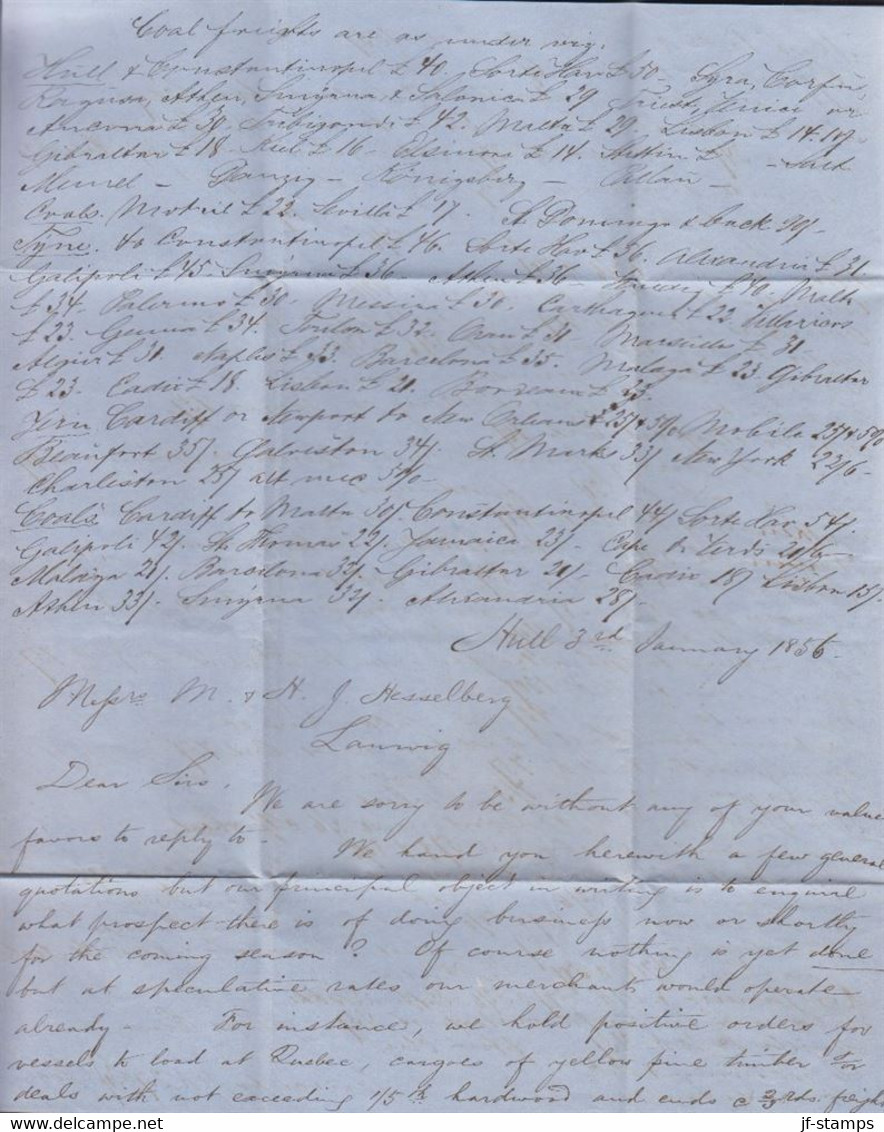 Coal freights are as under viz.
Hull to Constantinopel £ 40. Sorte Hav £ 50 – Syra, Corfu,
Ragusa, Athen, Smyrna, & Salonica £ 29 Triest, Venice or
Ancona £ 39. £ 42. Malta £ 29. Lisbon £ 14.
Gibraltar £ 18. Kiel £ 16 – Elsinore £ 14. Stettin £ –
Memel – Danzig – Königsberg – Pillau –
Coals. Motril £ 22. Sevilla £ 17. St Domingo & back 90/-
Tyne. to Constantinopel £ 46. Sorte Hav £ 56. Alexandria £ 31.
Galipoli £ 45. Smyrna £ 36 Athen £ 36 – £ 40. Malta
£ 34. Palermo £ 30 – Messina £ 30. Carthagena £ 22.
£ 23. Genua £ 34. Toulon £ 32. Oran £ 31 Marseilles £ 31 –
Algier £ 31. Naples £ 33. Barcelona £ 35. Malaga £ 23. Gibraltar
£ 23. Cadix £ 18. Lisbon £ 21. Bordeaux £ 33.
Cardiff or Newport to New Orleans 25/ & 5% Mobile 25/ & 5%
Beaufort 35/. Galviston 34/. St. Marks 33/ New York 22/6 –
Charliston 25/ all 5% –
Coals Cardiff to Malta 30/. Constantinopel 44/ Sorte Hav 54/.
Galipoli 42/. St. Thomas 22/. Jamaica 23/ – Cape de Verds 20/6
Malaga 21/. Barcelona 33/. Gibraltar 20/– Cadix 18/ Lisbon 15/.
Athen 33/. Smyrna 32/. Alexandria 28/
Hull 3rd January 1856 –
Messrs M. & H. J. Hesselberg
Laurwig
Dear Sirs.
We are sorry to be without any of your value
favors to reply to – We hand you herewith a few general
quotations but our principal object in writing is to enquire
what prospect there is of doing business now or shortly
for the coming season? Of course nothing is yet done
but at speculative rates our merchants would operate
already – For instance, we hold positive orders for
vessels to load at Quebec, cargoes of yellow pine timber &/or
deals with not exceeding 1/5th hardwood and ends @ 2/3rds freight
jf-stamps